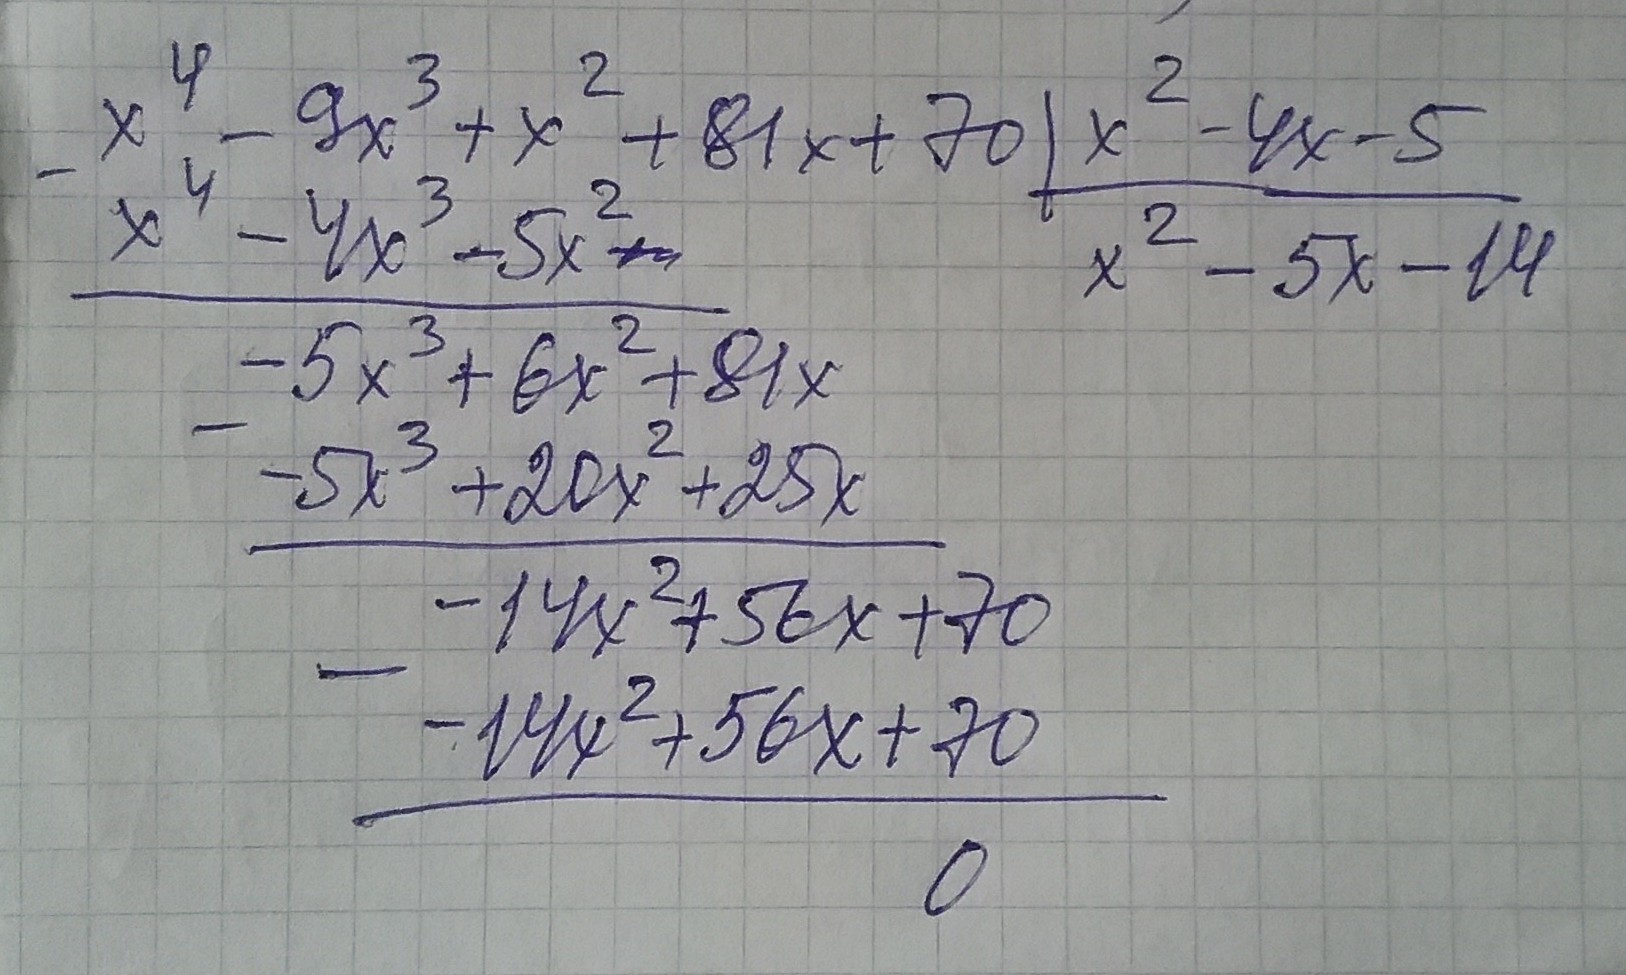 x⁴ - 9x³ + x² + 81x + 70 | x² - 4x - 5
- x⁴ - 4x³ - 5x² x² - 5x - 14
-5x³ + 6x² + 81x
- -5x³ + 20x² + 25x
-14x² + 56x + 70
- -14x² + 56x + 70
0